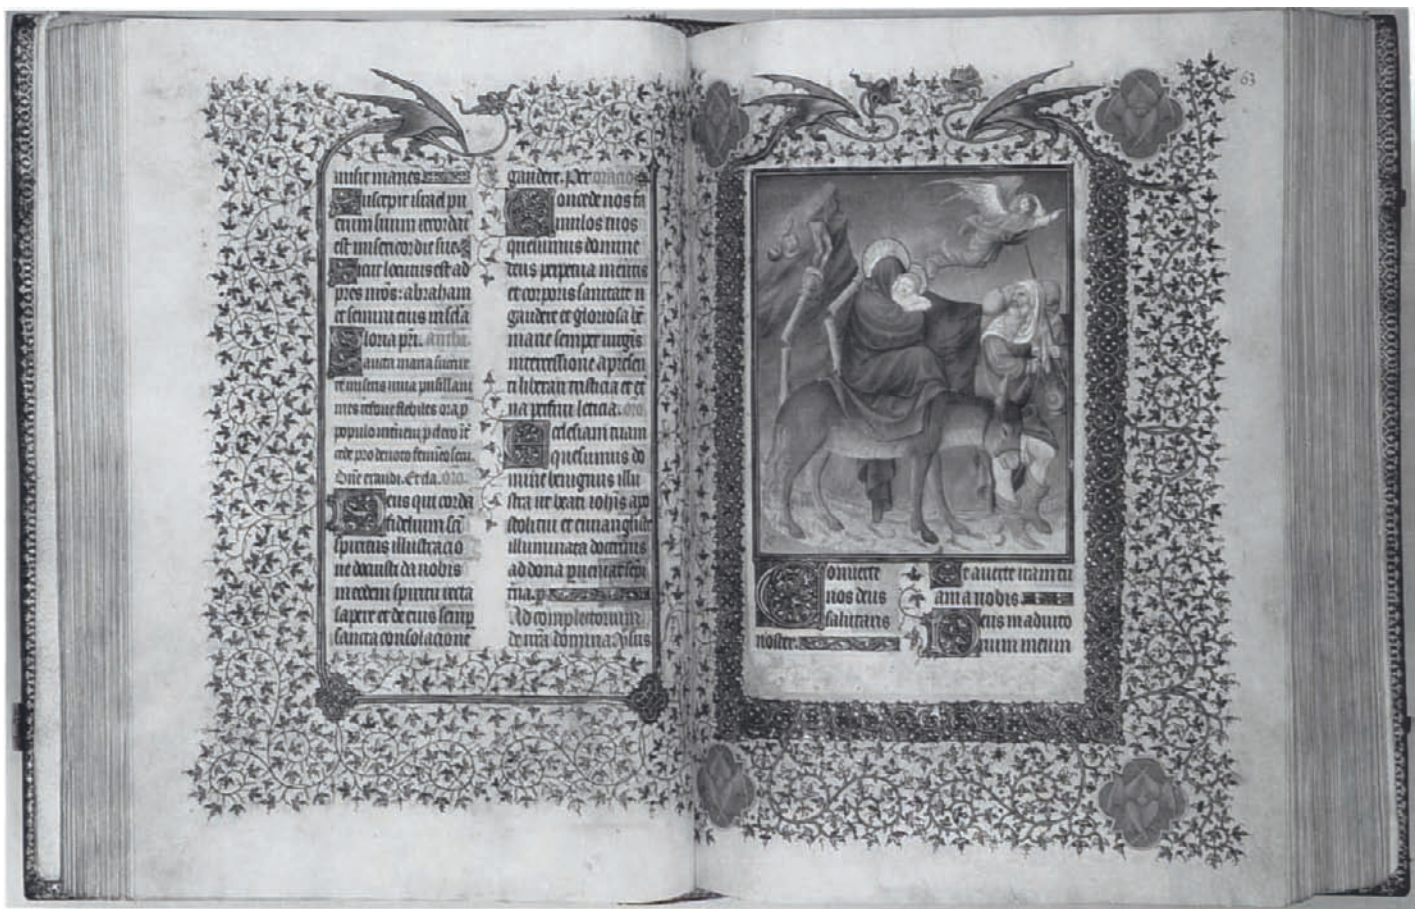 misit inanes
Suscepit israel pu
erum suum recordat
est misericordie sue
Sicut locutus est ad
pres nros: abraham
et semini eius in scla
Gloria pri. antha
Sancta maria succur
re miseris iuua pusillani
mes refoue flebiles ora p
populo interueni p clero
cede pro deuoto femineo sexu
Dne exaudi. Et cla. oro
Deus qui corda
fidelium sci
spiritus illustracio
ne docuisti da nobis
in eodem spiritu recta
sapere et de eius semp
sancta consolacione
gaudere. Per oracio
Concede nos fa
mulos tuos
quesumus domine
deus perpetua mentis
et corporis sanitate
gaudere et gloriosa be
marie semper uirgis
intercessione a presen
ti liberari tristicia et et
na perfrui leticia. oro
Ecclesiam tuam
quesumus do
mine benignus illu
stra ut beati iohis apo
stoli tui et euuangliste
illuminata doctrinis
ad dona pueniat sepi
tna. p
Ad completorium
63
Conuerte
nos deus
salutaris
noster.
Et auerte iram tu
am a nobis
Deus in adiuto
rium meum